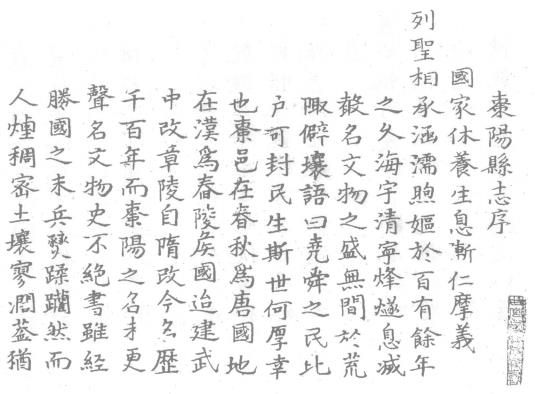 棗陽縣志序
國家休養生息漸仁摩義
列聖相承涵濡煦嫗於百有餘年
之久海宇清寧烽燧息滅
聲名文物之盛無間於荒
陬僻壤語曰堯舜之民比
户可封民生斯世何厚幸
也棗邑在春秋爲唐國地
在漢爲舂陵侯國迨建武
中改章陵自隋改今名歷
千百年而棗陽之名未更
聲名文物史不絶書雖經
勝國之末兵燹蹂躪然而
人煙稠密土壤寥濶葢猶